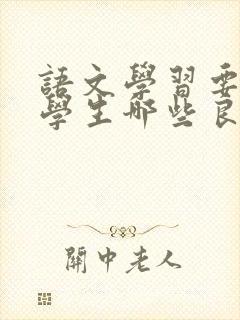 語文學習要
學生哪些良
關中老人